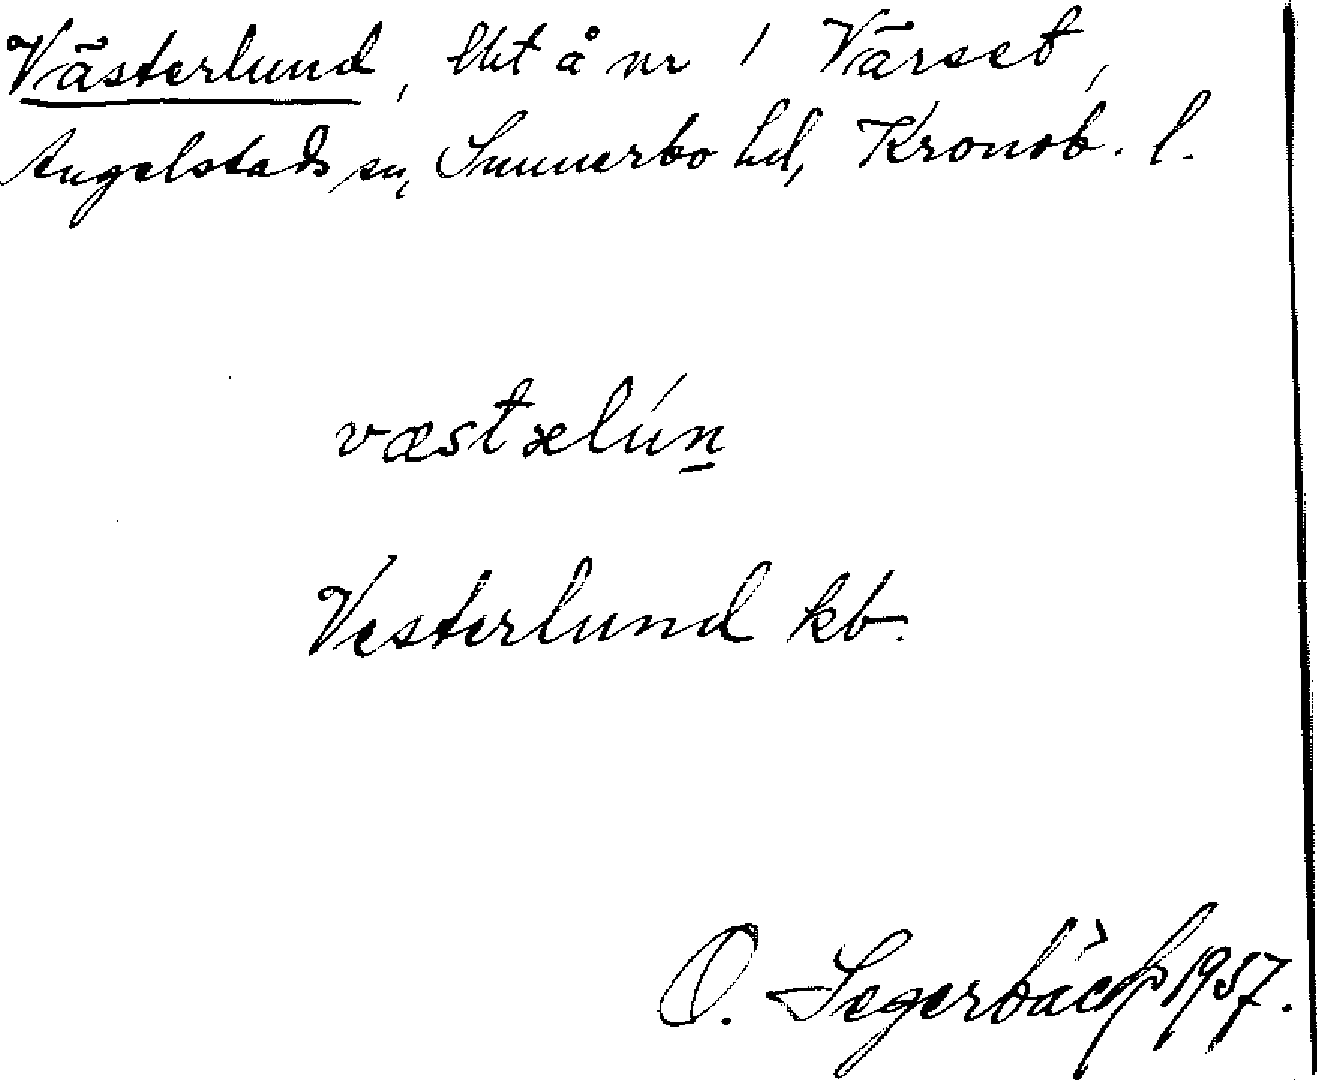 Västerlund, lht å nr 1 Värset,
Angelstads sn, Sunnerbo hd, Kronob. l.
væstælún
Vesterlund kb.
O. Segerbäck 1957.